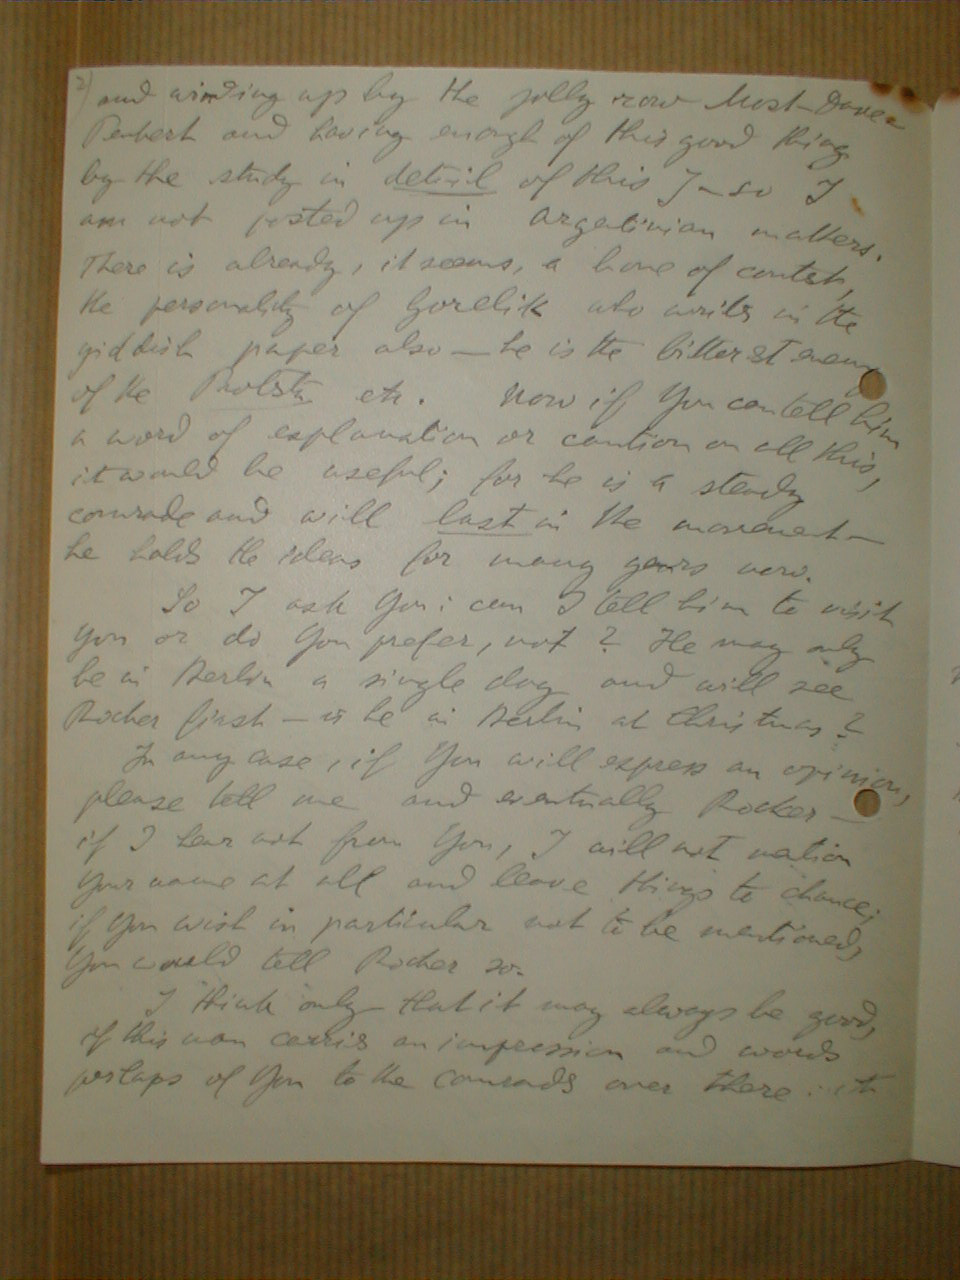 2) and winding up by the jolly row Most-Dave-
Peukert and having enough of this good thing
by the study in detail of this J — so I
am not posted up in argentinian matters.
There is already, it seems, a bone of contest,
the personality of Gorelik who writes in the
yiddish paper also — he is the bitterest enemy
of the Protesta etc. Now if You can tell him
a word of explanation or caution on all this,
it would be useful; for he is a steady
comrade and will last in the movement —
he holds the ideas for many years now.
So I ask You: can I tell him to visit
You or do You prefer, not? He may only
be in Berlin a single day and will see
Rocker first — is he in Berlin at Christmas?
In any case, if You will express an opinion,
please tell me and eventually Rocker —
if I hear not from You, I will not mention
Your name at all and leave things to chance;
if You wish in particular not to be mentioned,
You would tell Rocker so.
I think only that it may always be good,
if this man carries an impression and words
perhaps of You to the comrades over there: it